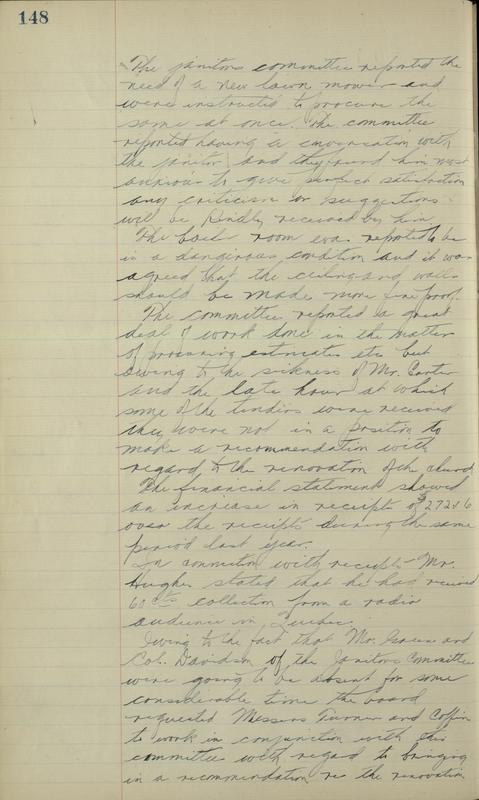 148
The janitors committee reported the
need of a new lawn mower and
were instructed to procure the
same at once. The committee
reported having a conversation with
the janitor and they found him most
anxious to give perfect satisfaction
any criticism or suggestions
will be kindly received by him
The boiler room was reported to be
in a dangerous condition and it was
agreed that the ceiling and walls
should be made more fire proof.
The committee reported a great
deal of work done in the matter
of procuring estimates etc but
owing to the sickness of Mr. Carter
and the late hour at which
some of the tenders were received
they were not in a position to
make a recommendation with
regard to the renovation of the church
The financial statement showed
an increase in receipts of
over the receipts during the same
period last year.
In connection with receipts Mr.
Hughes stated that he had received
60 cts collection from a radio
audience in Quebec.
Owing to the fact that Mr. and
Col. Davidson of the Janitors Committee
were going to be absent for some
considerable time the board
requested Messrs Turner and Coffin
to work in conjunction with this
committee with regard to bringing
in a recommendation re the renovation